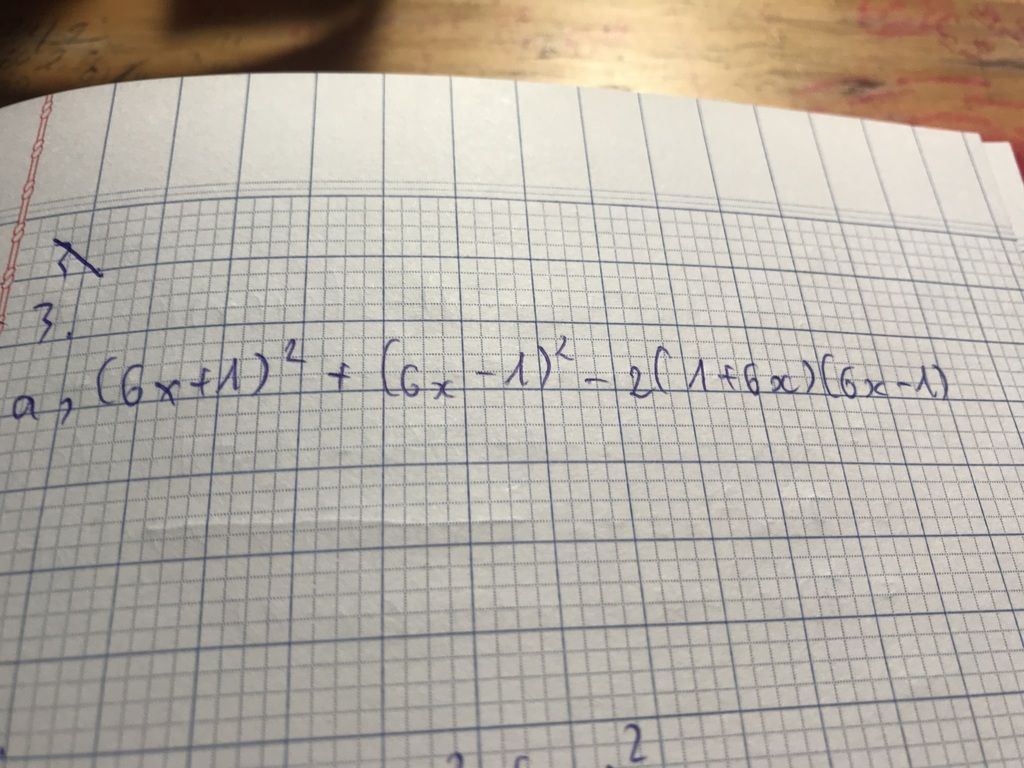 3.
a, (6x+1)² + (6x-1)² - 2(1+6x)(6x-1)
2